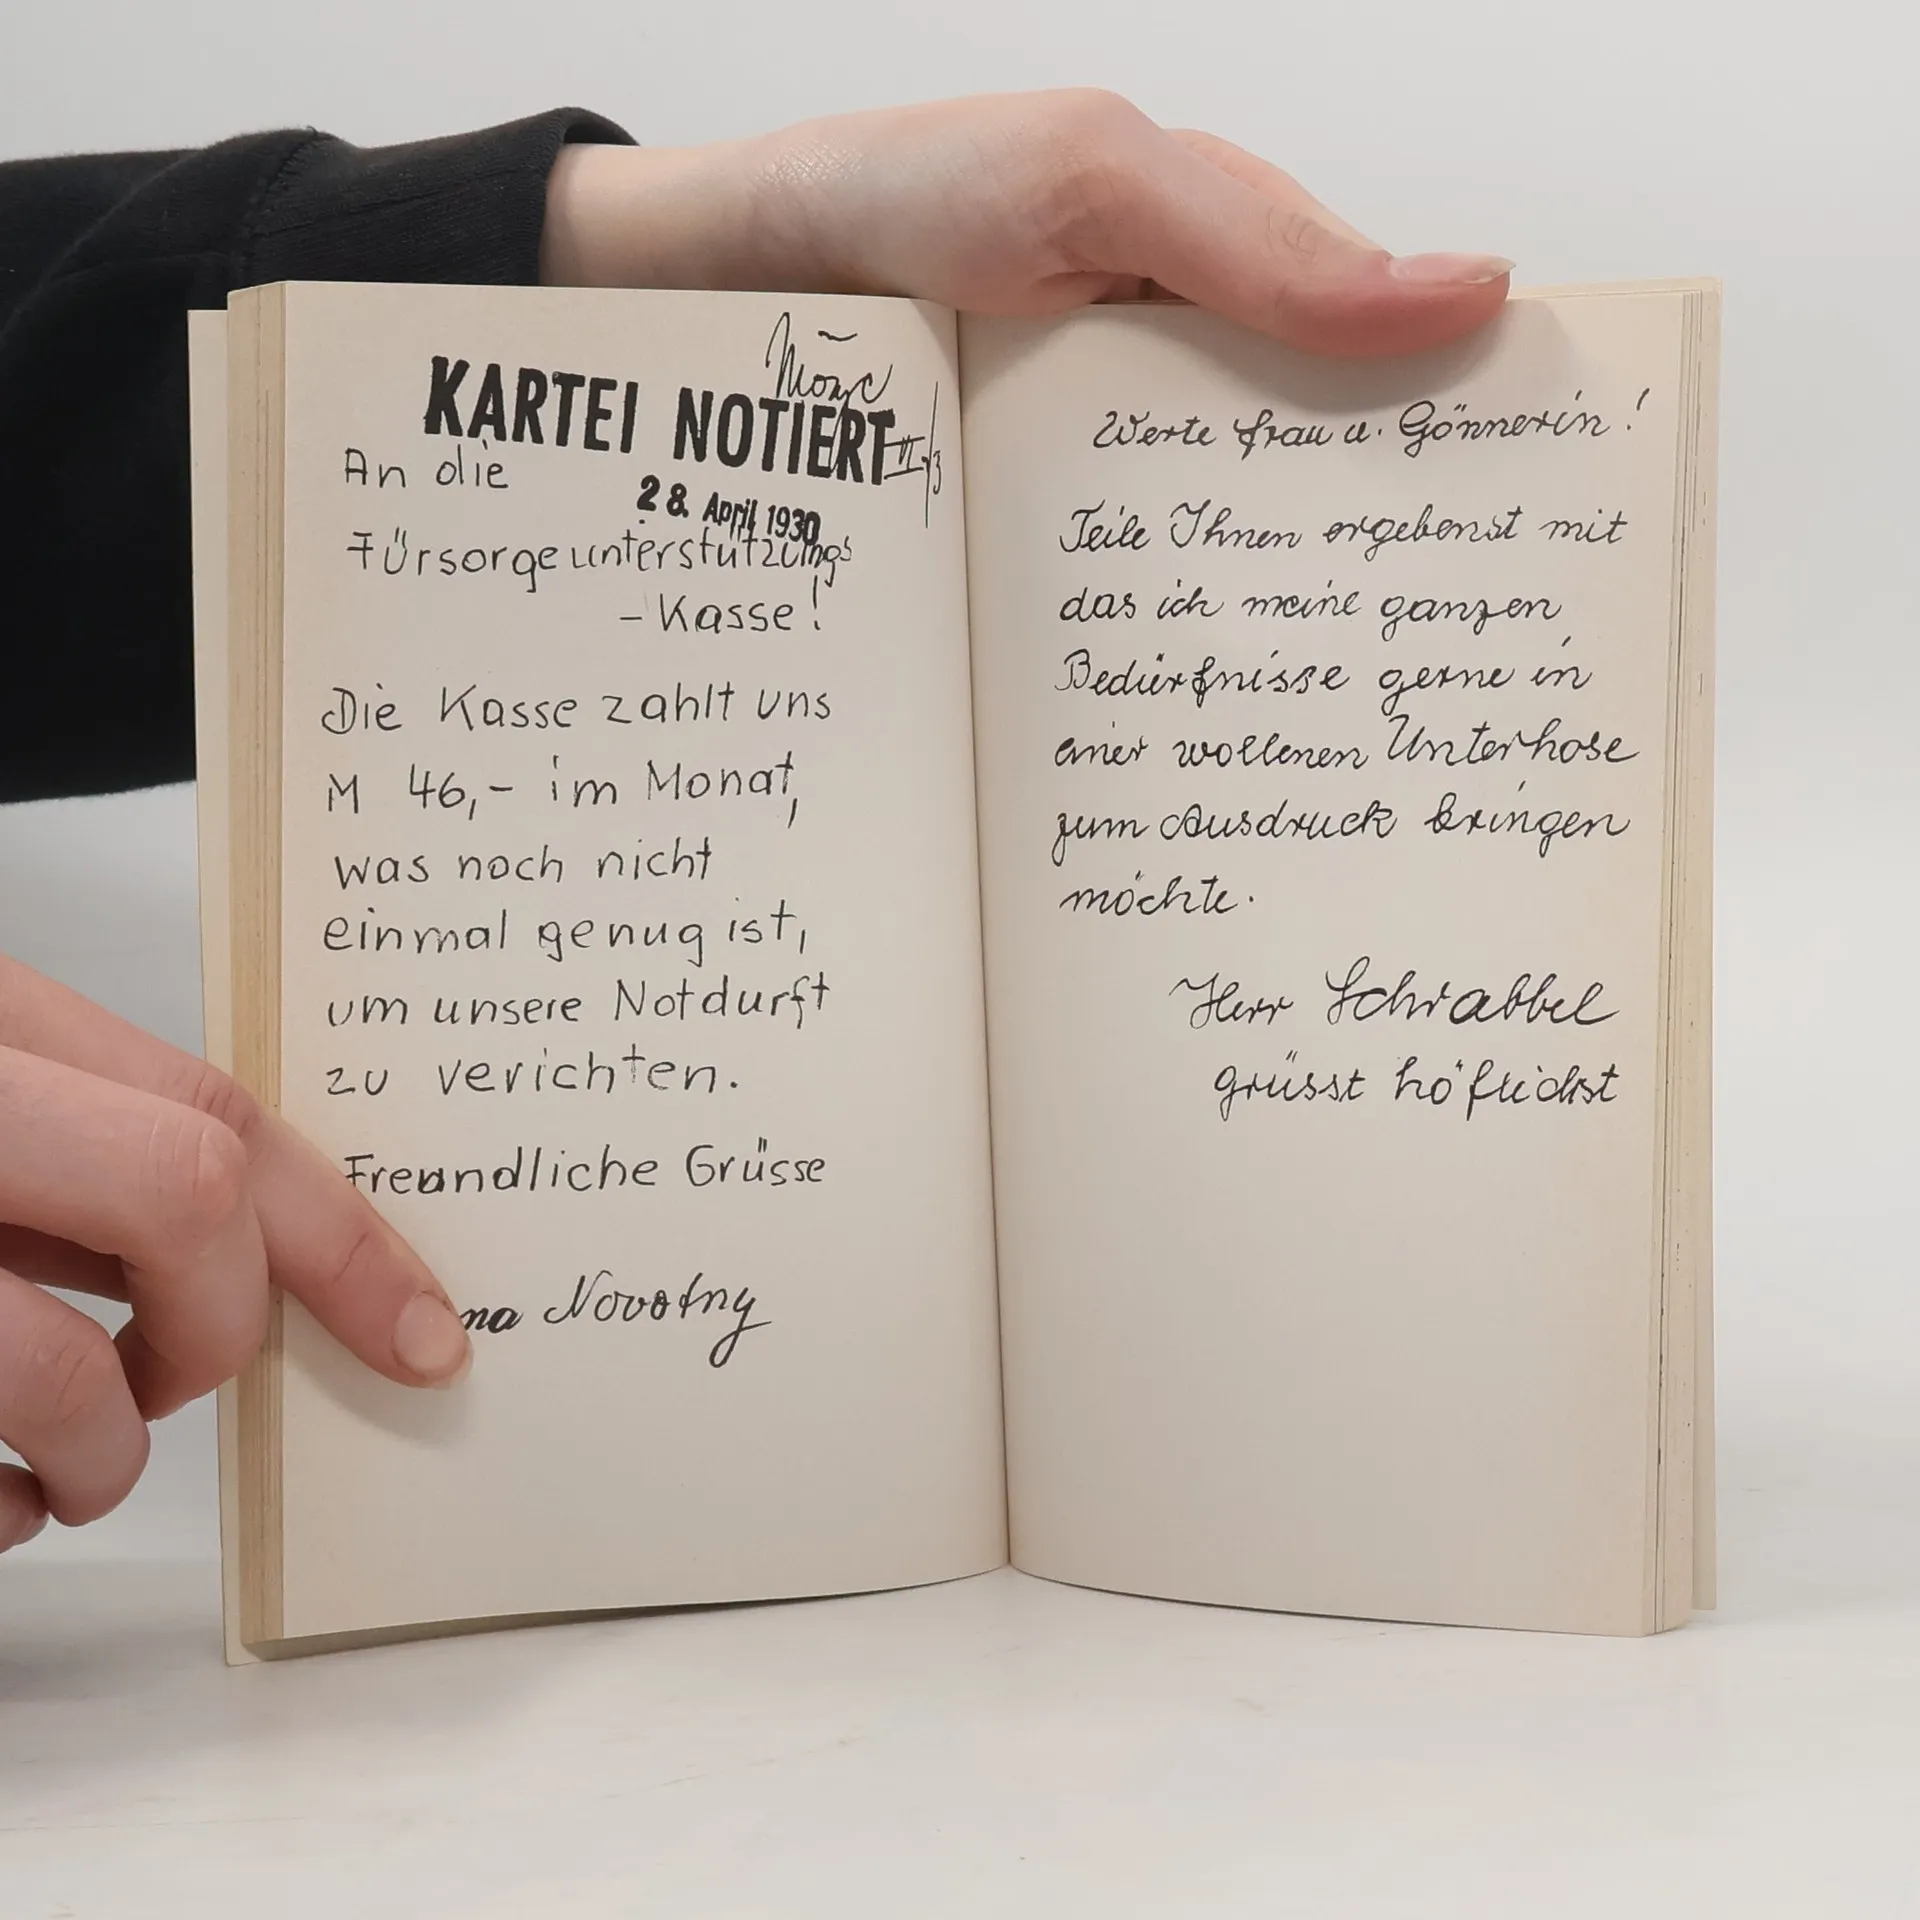 KARTEI NOTIERT
An die
28. April 1930
Fürsorgeunterstützungs
- Kasse!
Die Kasse zahlt uns
M 46,- im Monat,
was noch nicht
einmal genug ist,
um unsere Notdurft
zu verichten.
Freundliche Grüsse
Novotny
Werte Frau u. Gönnerin!
Teile Ihnen ergebenst mit
das ich meine ganzen
Bedürfnisse gerne in
einer wollenen Unterhose
zum Ausdruck bringen
möchte.
Herr Schrabbel
grüsst höflichst